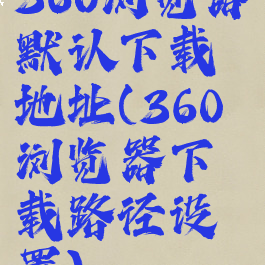 360浏览器
默认下载
地址(360
浏览器下
载路径设
置)